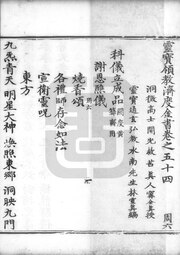 靈寶領教濟度金書卷之五十四　周六
洞微高士開光救苦真人甯全真授
靈寶通玄弘教水南先生林靈真編
科儀立成品
謝恩醮儀
燒香頌
各禮師存念如法
宣衛靈呪
東方
九炁青天　明星大神　煥照東鄉　洞映九門